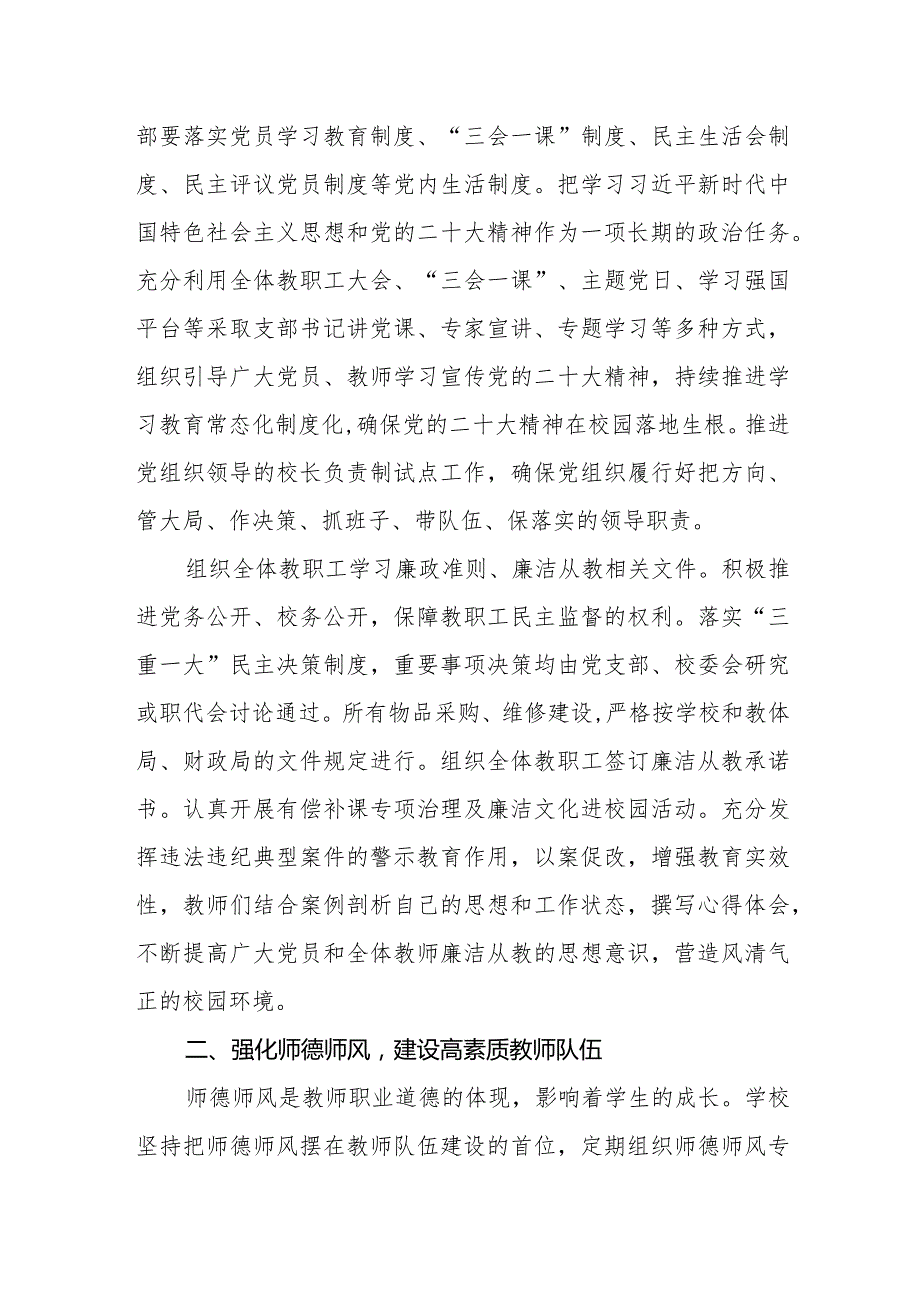 部要落实党员学习教育制度、“三会一课”制度、民主生活会制
度、民主评议党员制度等党内生活制度。把学习习近平新时代中
国特色社会主义思想和党的二十大精神作为一项长期的政治任务。
充分利用全体教职工大会、“三会一课”、主题党日、学习强国
平台等采取支部书记讲党课、专家宣讲、专题学习等多种方式，
组织引导广大党员、教师学习宣传党的二十大精神，持续推进学
习教育常态化制度化,确保党的二十大精神在校园落地生根。推进
党组织领导的校长负责制试点工作，确保党组织履行好把方向、
管大局、作决策、抓班子、带队伍、保落实的领导职责。
组织全体教职工学习廉政准则、廉洁从教相关文件。积极推
进党务公开、校务公开，保障教职工民主监督的权利。落实“三
重一大”民主决策制度，重要事项决策均由党支部、校委会研究
或职代会讨论通过。所有物品采购、维修建设,严格按学校和教体
局、财政局的文件规定进行。组织全体教职工签订廉洁从教承诺
书。认真开展有偿补课专项治理及廉洁文化进校园活动。充分发
挥违法违纪典型案件的警示教育作用，以案促改，增强教育实效
性，教师们结合案例剖析自己的思想和工作状态，撰写心得体会，
不断提高广大党员和全体教师廉洁从教的思想意识，营造风清气
正的校园环境。
二、强化师德师风，建设高素质教师队伍
师德师风是教师职业道德的体现，影响着学生的成长。学校
坚持把师德师风摆在教师队伍建设的首位，定期组织师德师风专